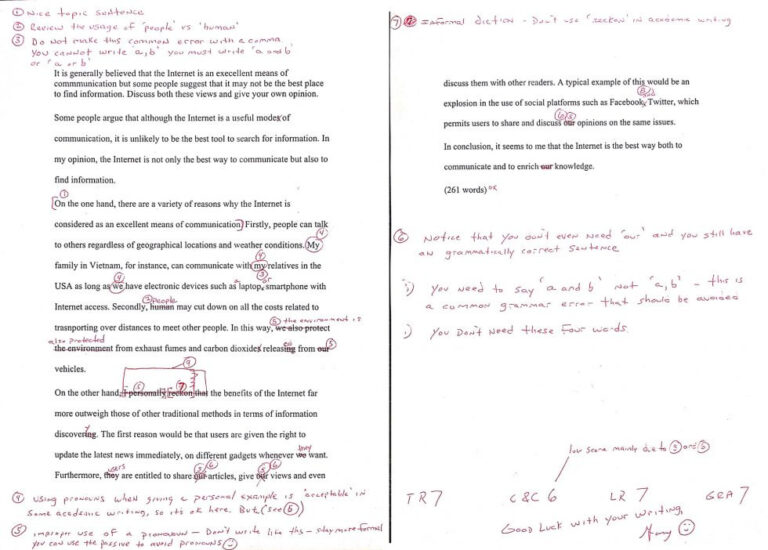 ① Nice topic sentence
② Review the usage of 'people' vs 'human'
③ Do not make this common error with a comma.
You cannot write 'a, b' you must write 'a and b'
or 'a or b'
It is generally believed that the Internet is an execellent means of
communication but some people suggest that it may not be the best place
to find information. Discuss both these views and give your own opinion.
Some people argue that although the Internet is a useful modes of
communication, it is unlikely to be the best tool to search for information. In
my opinion, the Internet is not only the best way to communicate but also to
find information.
①
On the one hand, there are a variety of reasons why the Internet is
considered as an excellent means of communication. Firstly, people can talk
④
to others regardless of geographical locations and weather conditions. My
④
family in Vietnam, for instance, can communicate with my relatives in the
④ a ③ or
USA as long as we have electronic devices such as laptop, smartphone with
② people
Internet access. Secondly, human may cut down on all the costs related to
⑤ the environment is
trasnporting over distances to meet other people. In this way, we also protect
also protected
the environment from exhaust fumes and carbon dioxides releasing from our ⑤
vehicles.
④
⑤ ⑦
On the other hand, I personally reckon that the benefits of the Internet far
more outweigh those of other traditional methods in terms of information
y
discovering. The first reason would be that users are given the right to
they
update the latest news immediately, on different gadgets whenever we want.
users ⑤ ⑥ ⑤ ⑥
Furthermore, they are entitled to share our articles, give our views and even
④ Using pronouns when giving a personal example is 'acceptable' in
some academic writing, so it's ok here. But (see ⑤)
⑤ improper use of a pronoun - Don't write like this - stay more formal
You can use the passive to avoid pronouns
⑦ Informal diction - Don't use 'reckon' in academic writing
discuss them with other readers. A typical example of this would be an
explosion in the use of social platforms such as Facebook, Twitter, which
⑥ ⑤
permits users to share and discuss our opinions on the same issues.
In conclusion, it seems to me that the Internet is the best way both to
communicate and to enrich our knowledge.
(261 words) OK
⑥ Notice that you don't even need 'our' and you still have
an grammatically correct sentence
i) You need to say 'a and b' not 'a, b' - this is
a common grammar error that should be avoided
i) You Don't need these four words
low score mainly due to ⑤ and ⑥
TR 7 C&C 6 LR 7 GRA 7
Good Luck with your writing,